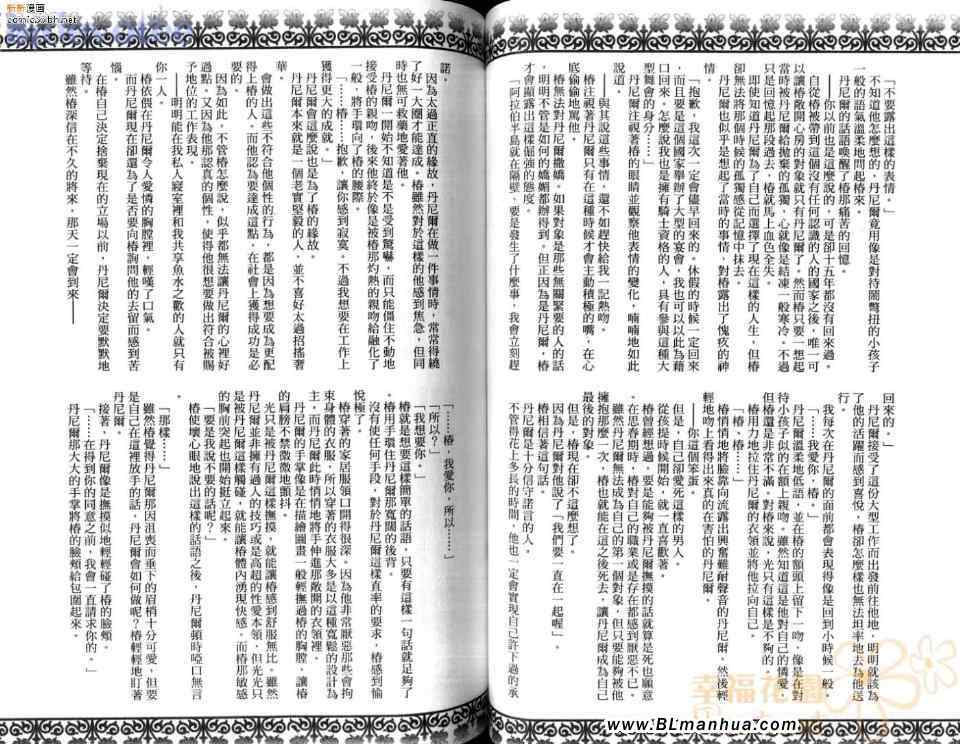 新新漫畫
comic.xxbh.net
「不要露出這樣的表情。」
不知道他怎麼想的，丹尼爾竟用像是對待鬧彆扭的小孩子
一般的語氣溫柔地問起椿來。
丹尼爾的話語喚醒了椿那痛苦的回憶。
──你以前也是這麼說的，可是卻十五年都沒有回來過。
自從椿被帶到這個沒有任何認識的人的國家之後，唯一可
以讓椿敞開心房的對象就只有丹尼爾了。然而椿只要一想起
當時被丹尼爾給拋棄的孤獨，心就像是結凍一般寒冷。不過
只是回憶起那段過去，椿就馬上血色全失。
即使知道丹尼爾為了自己而選擇了現在這樣的人生，但椿
卻無法將那個時候的孤獨感從記憶中抹去。
丹尼爾也似乎是想起了當時的事情，對椿露出了愧疚的神
情。
「抱歉，我這次一定會儘早回來的。休假的時候一定回來
，而且要是這個國家舉辦了大型的宴會，我也可以以此為藉
口回來。怎麼說我也是擁有騎士資格的人，具有參與這種大
型舞會的身分……」
丹尼爾注視著椿的眼睛並觀察他表情的變化，喃喃地如此
說道。
──與其說這些事情，還不如趕快給我一記熱吻。
椿注視著丹尼爾只有在這種時候才會主動積極的嘴，在心
底偷偷地罵他。
無法對丹尼爾撒嬌。如果對象是那些無關緊要的人的話
，明明不管是如何的嬌媚都辦得到。但正因為是丹尼爾，椿
才會顯露出這樣倔強的態度。
「阿拉伯半島就在隔壁，要是發生了什麼事，我會立刻趕
回來的。」
丹尼爾接受了這份大型工作而出發前往他地，明明就該為
了他的活躍而感到喜悅，椿卻怎麼樣也無法坦率地去為他送
行。
我每次在丹尼爾的面前都會表現得像是回到小時候一般。
「……我愛你，椿。」
丹尼爾溫柔地低語，並在椿的額頭上留下一吻，像是在對
待小孩子似的在額上親吻。雖然知道這是他對自己的憐愛，
但椿還是非常不滿。對椿來說，光只有這樣是不夠的。
椿用力地拉住丹尼爾的衣領並將他拉向自己。
「椿、椿……」
輕輕悄悄地將臉靠向流露出興奮難耐聲音的丹尼爾，然後輕
輕地吻上看得出來真的在害怕的丹尼爾。
──你這個笨蛋。
但是，自己卻愛死這樣的男人。
從孩提時候開始，就一直喜歡著。
椿曾經想過，要是能夠被丹尼爾撫摸的話就算是死也願意
。在思春期時，椿對自己的職業或是存在都感到厭惡不已。
雖然丹尼爾無法成為自己的第一個對象，但只要能夠被他
擁抱那麼一次，椿也就能在這之後死去，讓丹尼爾成為自己
最後的對象。
但是，椿現在卻不這麼想了。
因為丹尼爾對他說了「我們要一直在一起喔」
椿相信著這句話。
丹尼爾是十分信守諾言的人。
不管得花上多長的時間，他也一定會實現自己許下過的承
諾。
因為太過正直的緣故，丹尼爾在做一件事情時，常常得繞
了好一大圈才能達成。椿雖然對於這樣的他感到焦急，但同
時也無可救藥地愛著他。
丹尼爾一開始不知道是不是受到驚嚇，而只能僵住不動地
接受椿的親吻，後來他終於像是被椿那灼熱的親吻給融化了
一般，將手環向了椿的腰際。
「……椿……抱歉，讓你感到寂寞。不過我想要在工作上
獲得更大的成就。」
丹尼爾會這麼說也是為了椿的緣故。
丹尼爾本來就是一個老實堅毅的人，並不喜好太過招搖奢
華。
會做出這些不符合他個性的行為，都是因為想要成為更配
得上椿的人。而他認為要達成這點，在社會上獲得成功是必
要的。
因為如此，不管椿怎麼說，似乎都無法讓丹尼爾的心裡好
過點。又因為他那認真的個性，使得他很想要做出符合被賜
予地位的工作表現。
──明明能在我私人寢室裡和我共享魚水之歡的人就只有
你一人。
椿依偎在丹尼爾令人愛憐的胸膛裡，輕嘆了口氣。
而丹尼爾現在卻還為了是否要向椿詢問他的去留而感到苦
惱。
在椿自己決定捨棄現在的立場以前，丹尼爾決定要默默地
等待。
雖然椿深信在不久的將來，那天一定會到來──
「……椿，我愛你，所以……」
「所以？」
「我想要你。」
椿就是想要這樣簡單的話語，只要有這樣一句話就足夠了
。椿用手環住丹尼爾那寬闊的後背。
沒有使任何手段，對於丹尼爾這樣直率的要求，椿感到愉
悅極了。
椿穿著的家居服領口開得很深。因為他非常厭惡那些會拘
束身體的衣服，所以穿著的衣服大多是以這種寬鬆的設計為
主，而丹尼爾此時悄悄地將手伸進那敞開的衣領裡。
丹尼爾的手掌像是在描繪圖畫一般輕撫過椿的胸膛，讓椿
的肩膀不禁微微地顫抖。
光只是被丹尼爾這樣撫摸，就能讓椿感到舒服無比。雖然
丹尼爾並非擁有過人的技巧或是高超的性愛本領，但光光只
是被丹尼爾這樣觸碰，就能讓椿體內湧現快感。而椿那敏感
的胸前突起也開始挺立起來。
「要是我說不要的話呢？」
椿使壞心眼地說出這樣的話語之後，丹尼爾頓時啞口無言
。
「那樣……」
雖然椿覺得丹尼爾那因沮喪而垂下的眉梢十分可愛，但要
是自己在這裡放手的話，丹尼爾會如何做呢？椿輕輕地盯著
丹尼爾。
接著，丹尼爾像是撫摸似地輕輕碰了椿的臉頰。
「……在得到你的同意之前，我會一直請求你的。」
丹尼爾大大的手掌將椿的臉頰給包圍起來。
幸福花園
www.BLmanhua.com